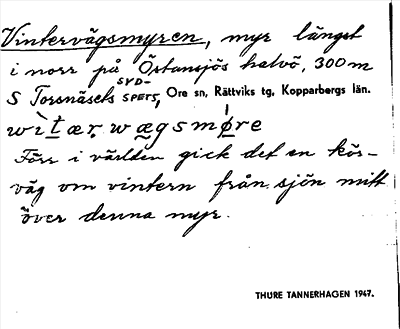 Vintervägsmyren, myr längst
i norr på Östansjös halvö, 300 m
S Torsnäsets SYD-SPETS, Ore sn, Rättviks tg, Kopparbergs län.
wìtær wægsmøre
Förr i världen gick det en kör-
väg om vintern från sjön mitt
över denna myr.
THURE TANNERHAGEN 1947.